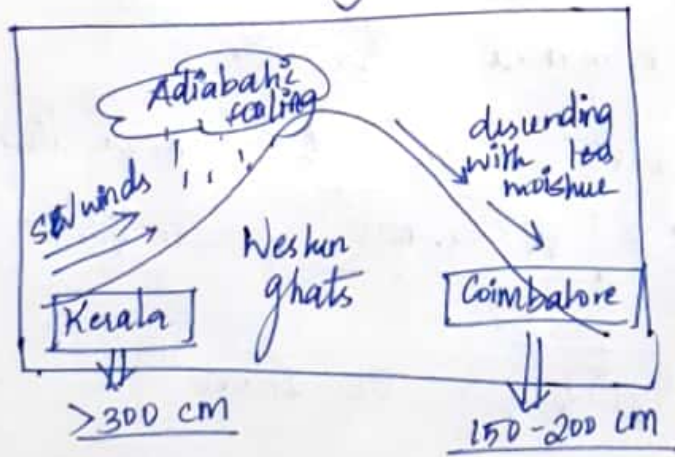 Adiabatic
cooling
SW winds
descending
with less
moisture
Western
ghats
Kerala
Coimbatore
>300 cm
150-200 cm